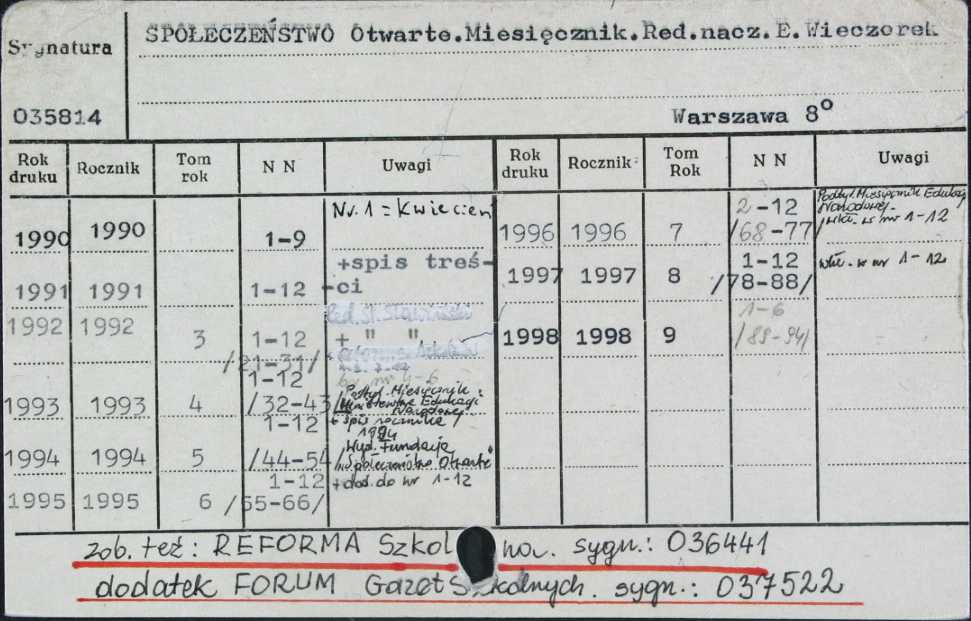 SPOŁECZEŃSTWO Otwarte.Miesięcznik.Red.nacz.E.Wieczorek
Sygnatura
035814
Warszawa 8°
Rok druku Rocznik Tom rok N N Uwagi Rok druku Rocznik Tom Rok N N Uwagi
Nr. 1 = Kwiecień
1990 1990 1-9
+spis treś-
1991 1991 1-12 ci
Red. St. Sławiński
1992 1992 3 1-12 + " "
/21-31/
nr 4-6
1993 1993 4 1-12 /32-43/
Podtyt. Miesięcznik
Ministerstwa Edukacji
Narodowej
+ spis rocznika
1994
1994 1994 5 1-12 /44-54/
Wyd. Fundacja
Społeczeństwo Otwarte
1995 1995 6 1-12 /55-66/ + dod. do nr 1-12
1996 1996 7 2-12 /68-77/
Podtyt. Miesięcznik Edukacji
Narodowej
wkł. w nr 1-12
1997 1997 8 1-12 /78-88/ wkł. w nr 1-12
1998 1998 9 1-6 /89-94/
zob. też: REFORMA Szkol na. sygn.: 036441
dodatek FORUM Gazet Szkolnych. sygn.: 037522